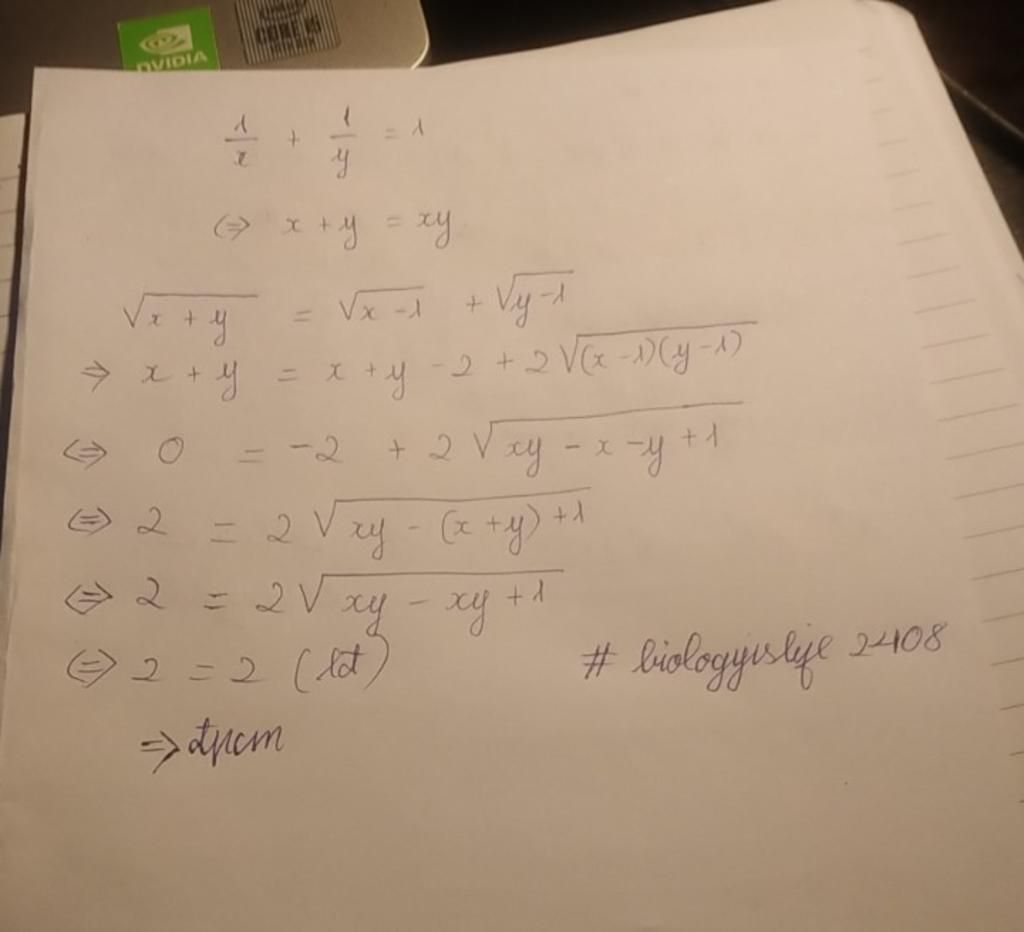 NVIDIA
CORE i5
1/x + 1/y = 1
⇔ x + y = xy
√(x + y) = √(x - 1) + √(y - 1)
⇒ x + y = x + y - 2 + 2√((x - 1)(y - 1))
⇔ 0 = -2 + 2√(xy - x - y + 1)
⇔ 2 = 2√(xy - (x + y) + 1)
⇔ 2 = 2√(xy - xy + 1)
⇔ 2 = 2 (lđ)
# biologyislife 2408
⇒ đpcm